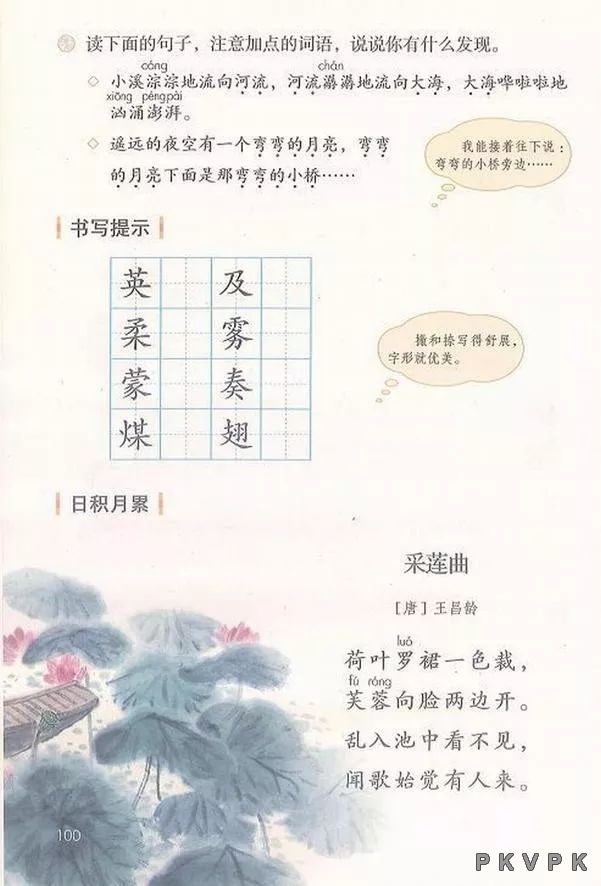 读下面的句子，注意加点的词语，说说你有什么发现。
cóng chán
◇ 小溪淙淙地流向河流，河流潺潺地流向大海，大海哗啦啦地
xiōng péngpài
汹涌澎湃。
◇ 遥远的夜空有一个弯弯的月亮，弯弯
的月亮下面是那弯弯的小桥……
我能接着往下说：
弯弯的小桥旁边……
书写提示
英 及
柔 雾
蒙 奏
煤 翅
撇和捺写得舒展，
字形就优美。
日积月累
采莲曲
［唐］王昌龄
luó
荷叶罗裙一色裁，
fú róng
芙蓉向脸两边开。
乱入池中看不见，
闻歌始觉有人来。
100
PKVPK